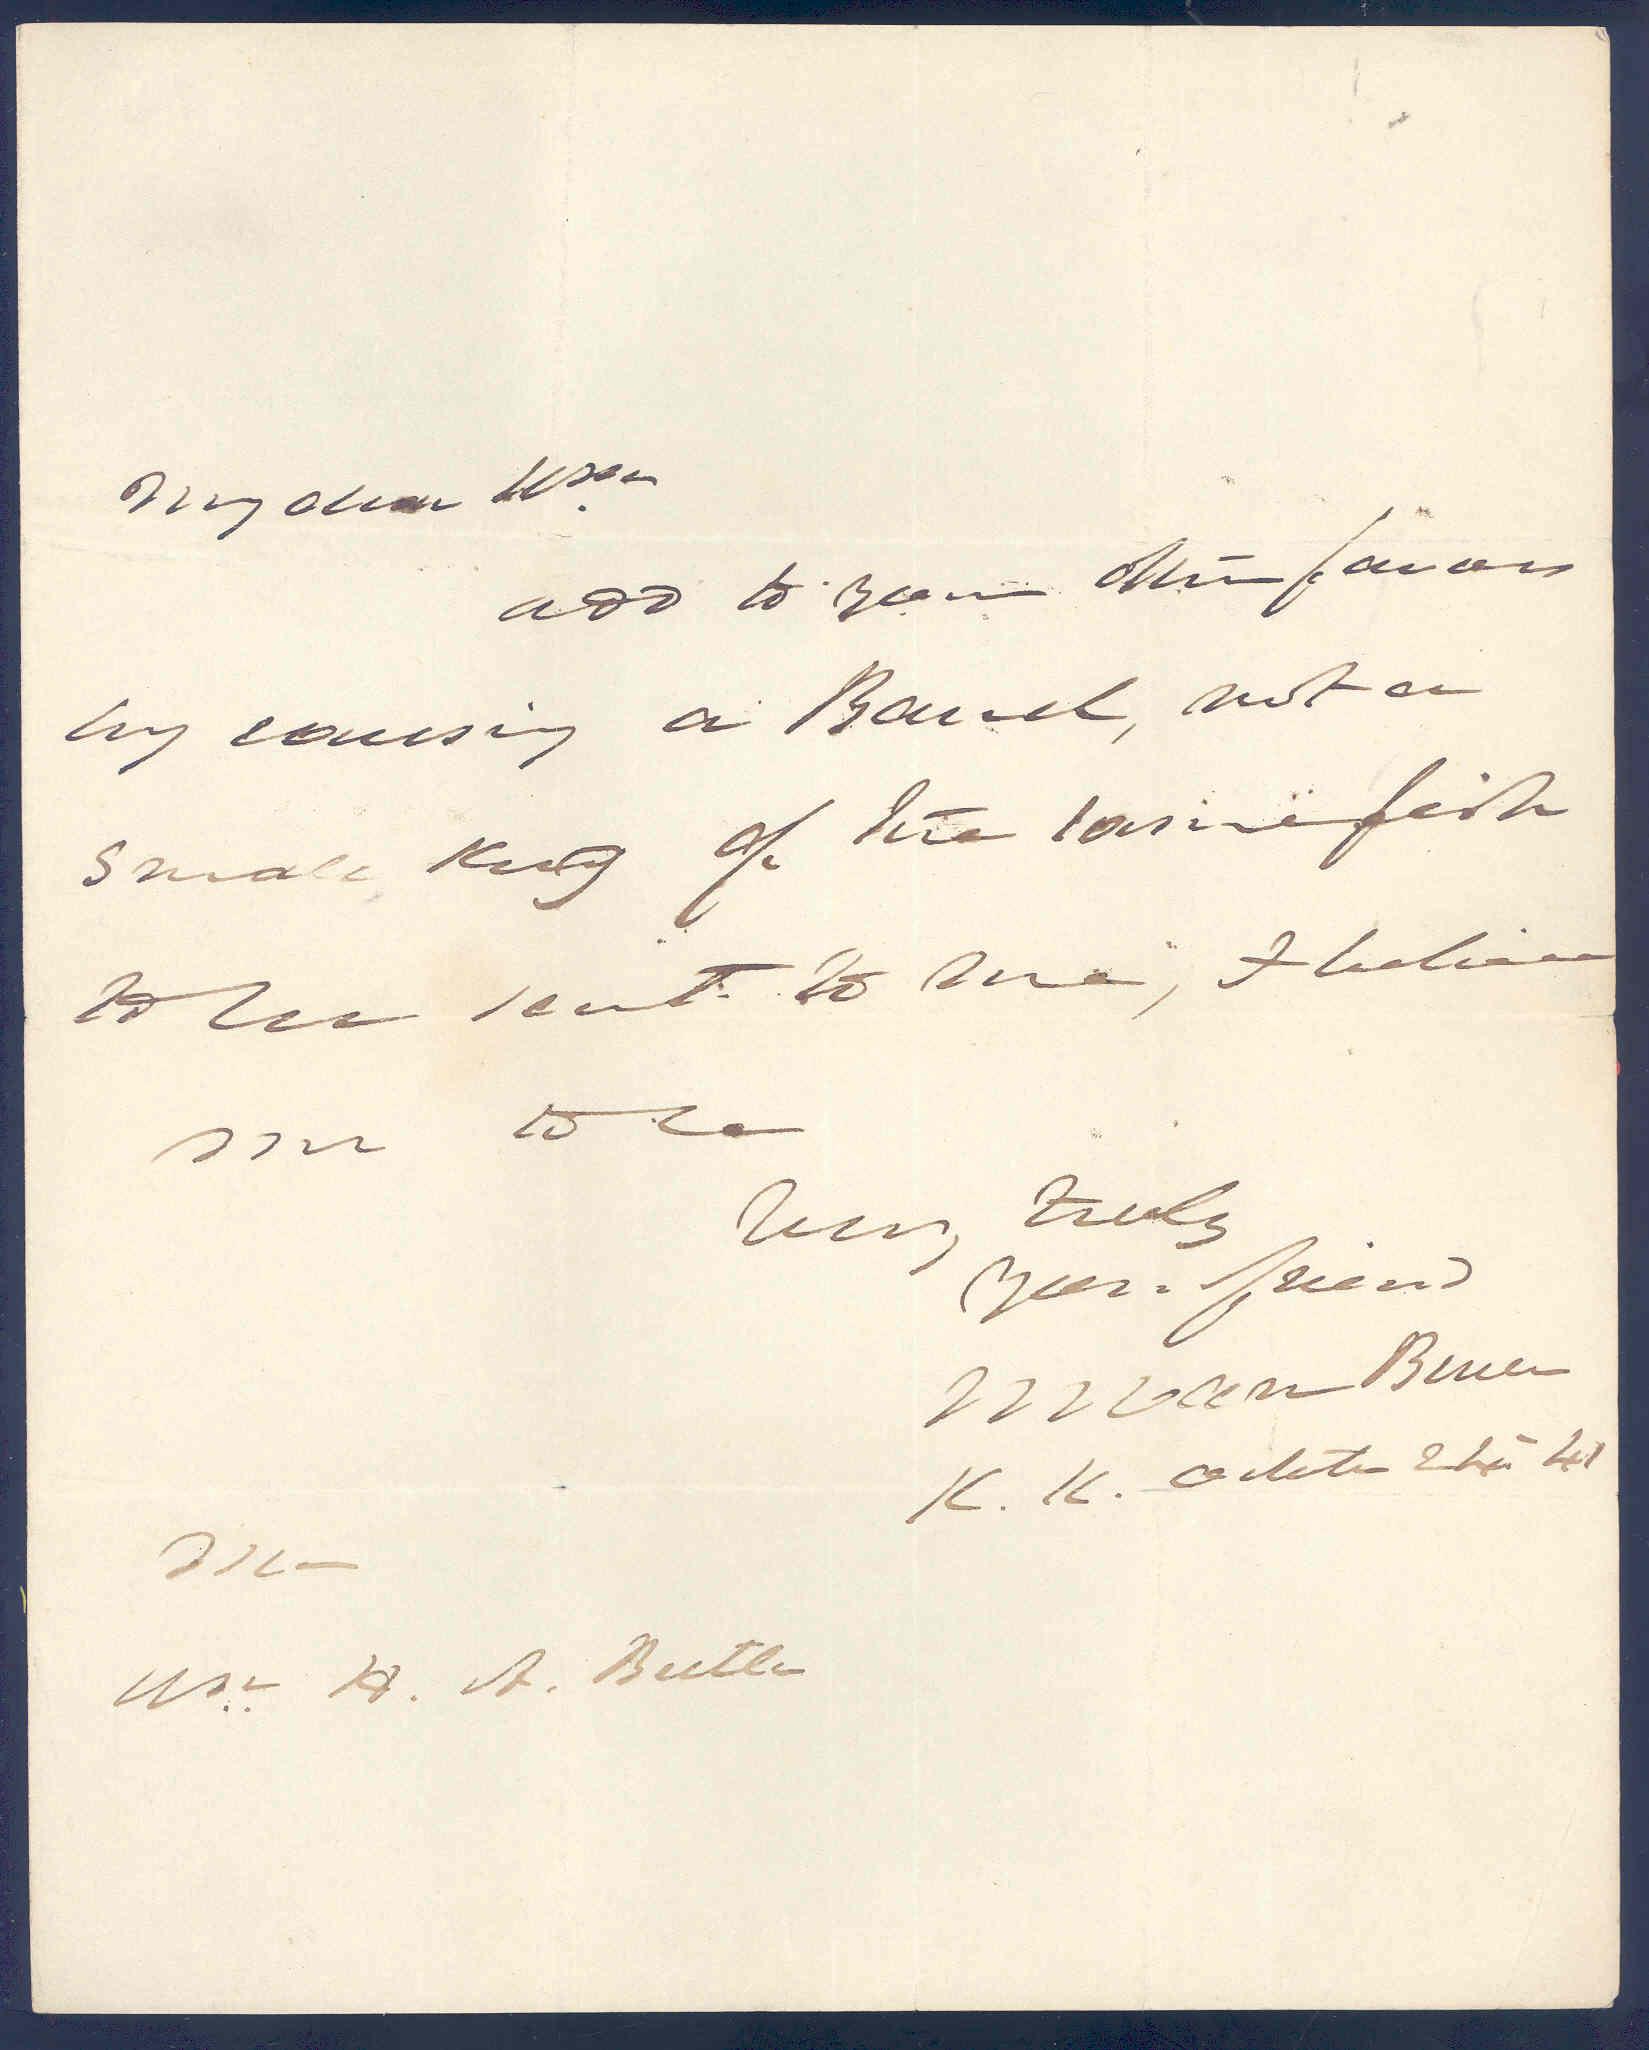 My dear Wm.
add to your other favors
by causing a Barrel, not a
small Keg of the same fish
to be sent to me, & believe
me to be
Very truly
your friend
M Van Buren
K. K. 41
Mr
Wm. H. A. Butler